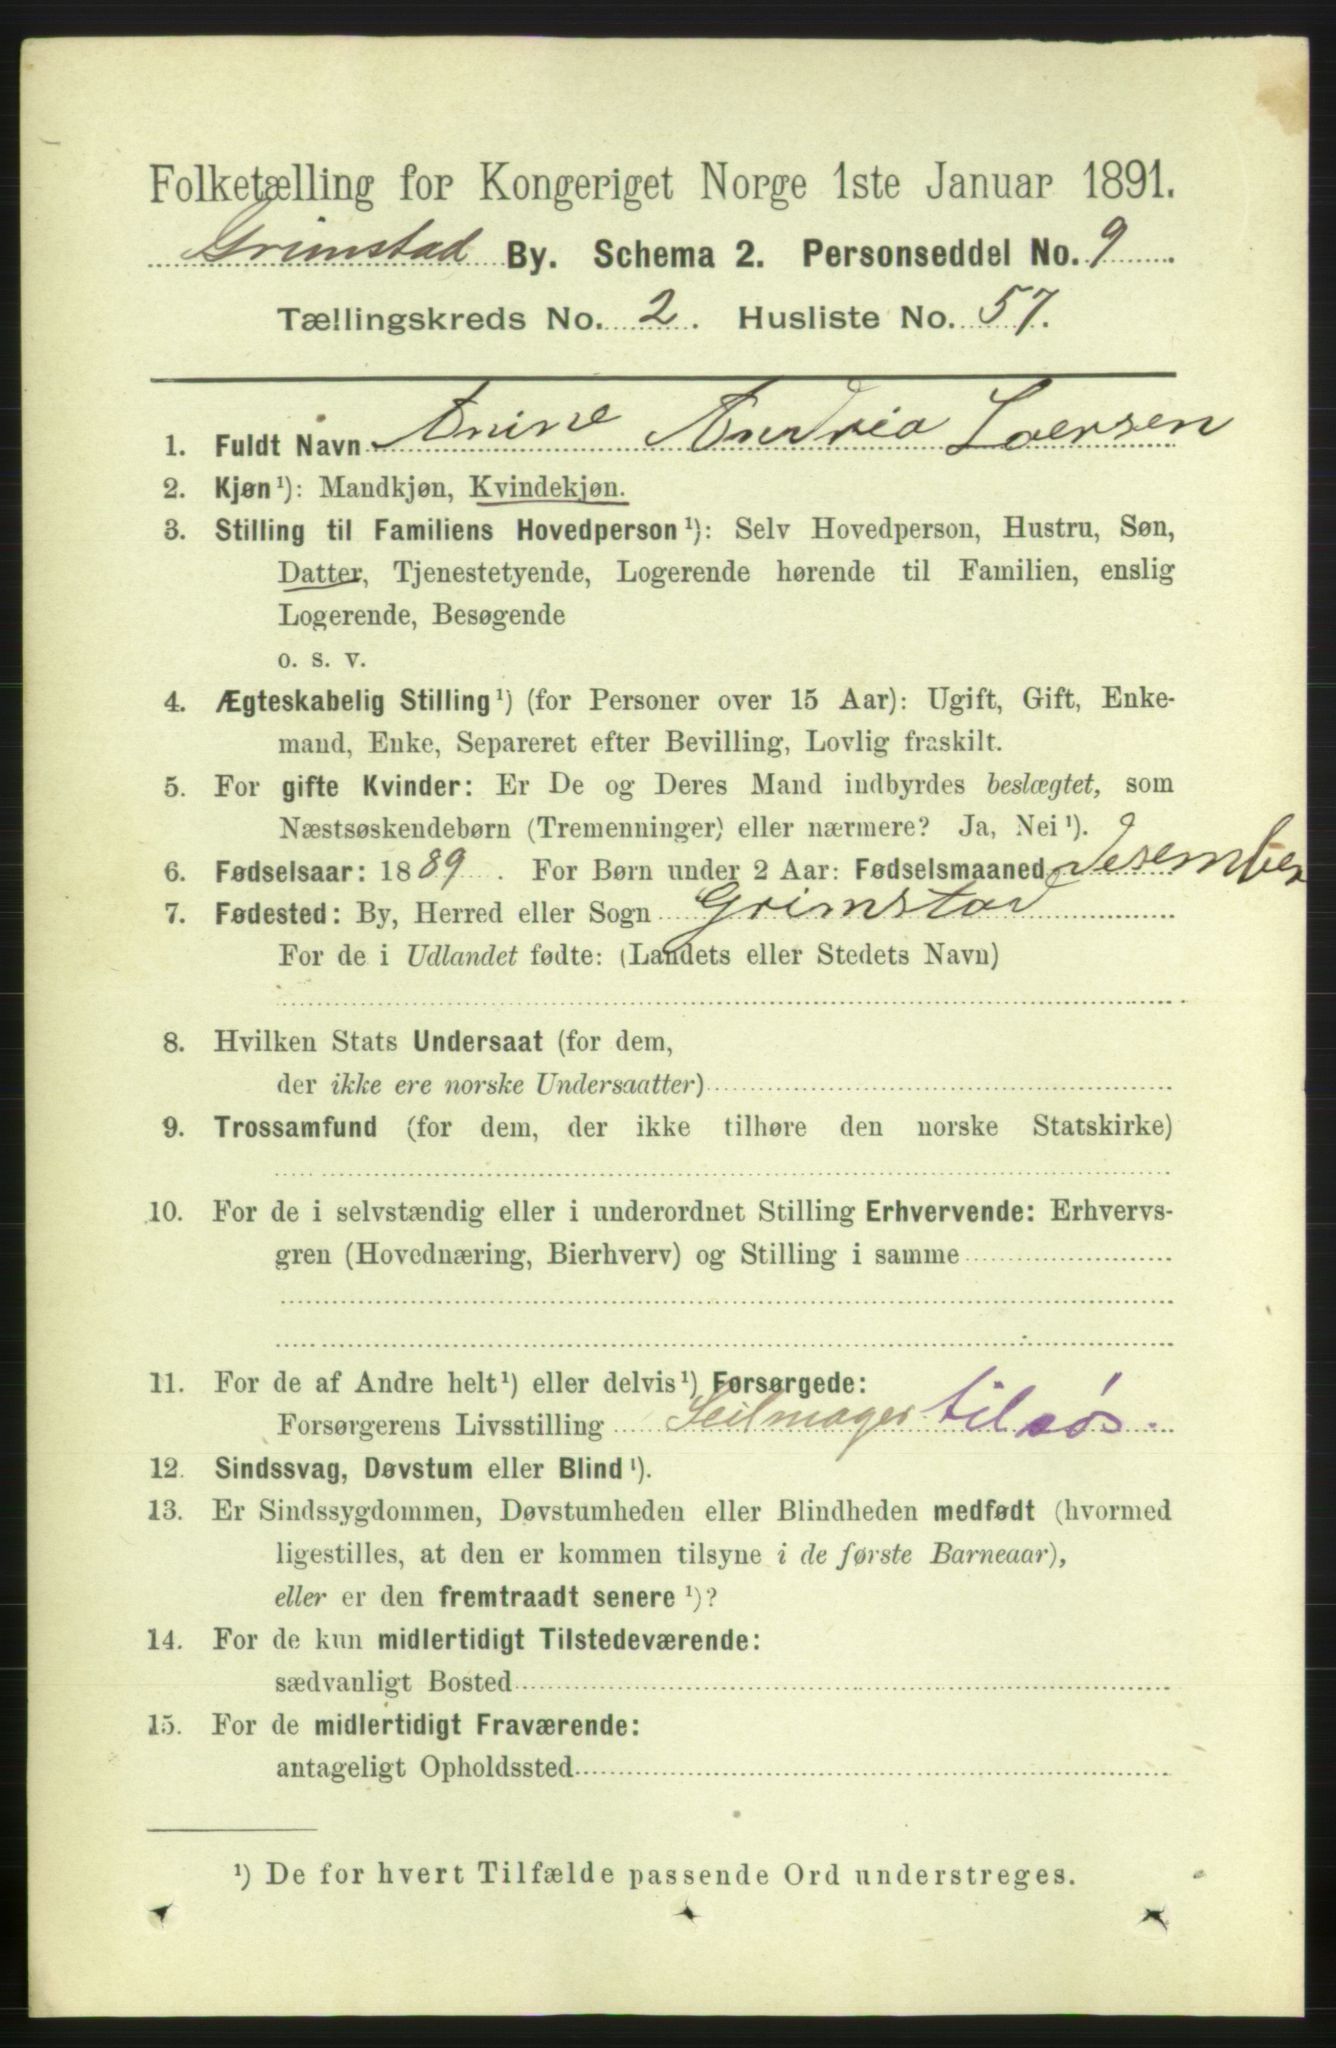 Folketælling for Kongeriget Norge 1ste Januar 1891.
Grimstad By. Schema 2. Personseddel No. 9
Tællingskreds No. 2. Husliste No. 57.
1. Fuldt Navn Anine Andrea Laersen
2. Kjøn ¹): Mandkjøn, Kvindekjøn.
3. Stilling til Familiens Hovedperson ¹): Selv Hovedperson, Hustru, Søn,
Datter, Tjenestetyende, Logerende hørende til Familien, enslig
Logerende, Besøgende
o. s. v.
4. Ægteskabelig Stilling ¹) (for Personer over 15 Aar): Ugift, Gift, Enke-
mand, Enke, Separeret efter Bevilling, Lovlig fraskilt.
5. For gifte Kvinder: Er De og Deres Mand indbyrdes beslægtet, som
Næstsøskendebørn (Tremenninger) eller nærmere? Ja, Nei ¹).
6. Fødselsaar: 1889. For Børn under 2 Aar: Fødselsmaaned Desember
7. Fødested: By, Herred eller Sogn Grimstad
For de i Udlandet fødte: (Landets eller Stedets Navn)
8. Hvilken Stats Undersaat (for dem,
der ikke ere norske Undersaatter)
9. Trossamfund (for dem, der ikke tilhøre den norske Statskirke)
10. For de i selvstændig eller i underordnet Stilling Erhvervende: Erhvervs-
gren (Hovednæring, Bierhverv) og Stilling i samme
11. For de af Andre helt ¹) eller delvis ¹) Forsørgede:
Forsørgerens Livsstilling Seilmager tilsøs.
12. Sindssvag, Døvstum eller Blind ¹).
13. Er Sindssygdommen, Døvstumheden eller Blindheden medfødt (hvormed
ligestilles, at den er kommen tilsyne i de første Barneaar),
eller er den fremtraadt senere ¹)?
14. For de kun midlertidigt Tilstedeværende:
sædvanligt Bosted
15. For de midlertidigt Fraværende:
antageligt Opholdssted
¹) De for hvert Tilfælde passende Ord understreges.